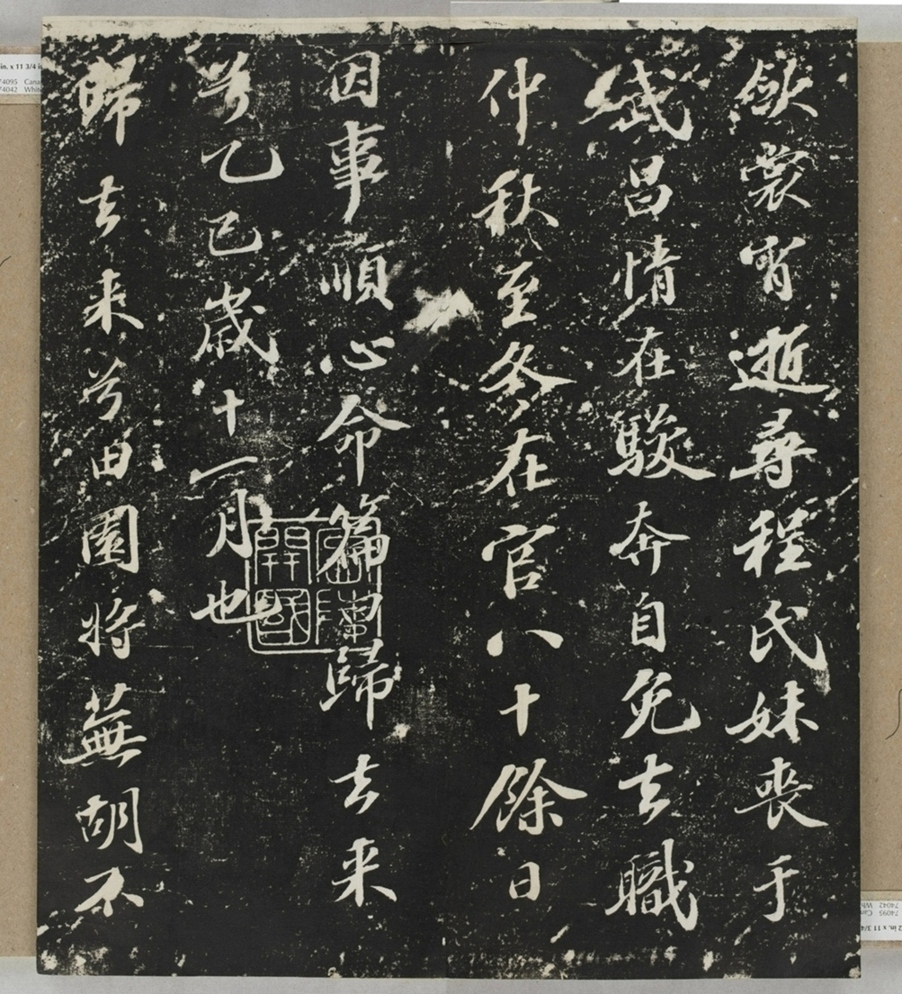 斂裳宵逝尋程氏妹喪于
武昌情在駿奔自免去職
仲秋至冬在官八十餘日
因事順心命篇曰歸去来
兮乙巳歲十一月也
歸去来兮田園將蕪胡不